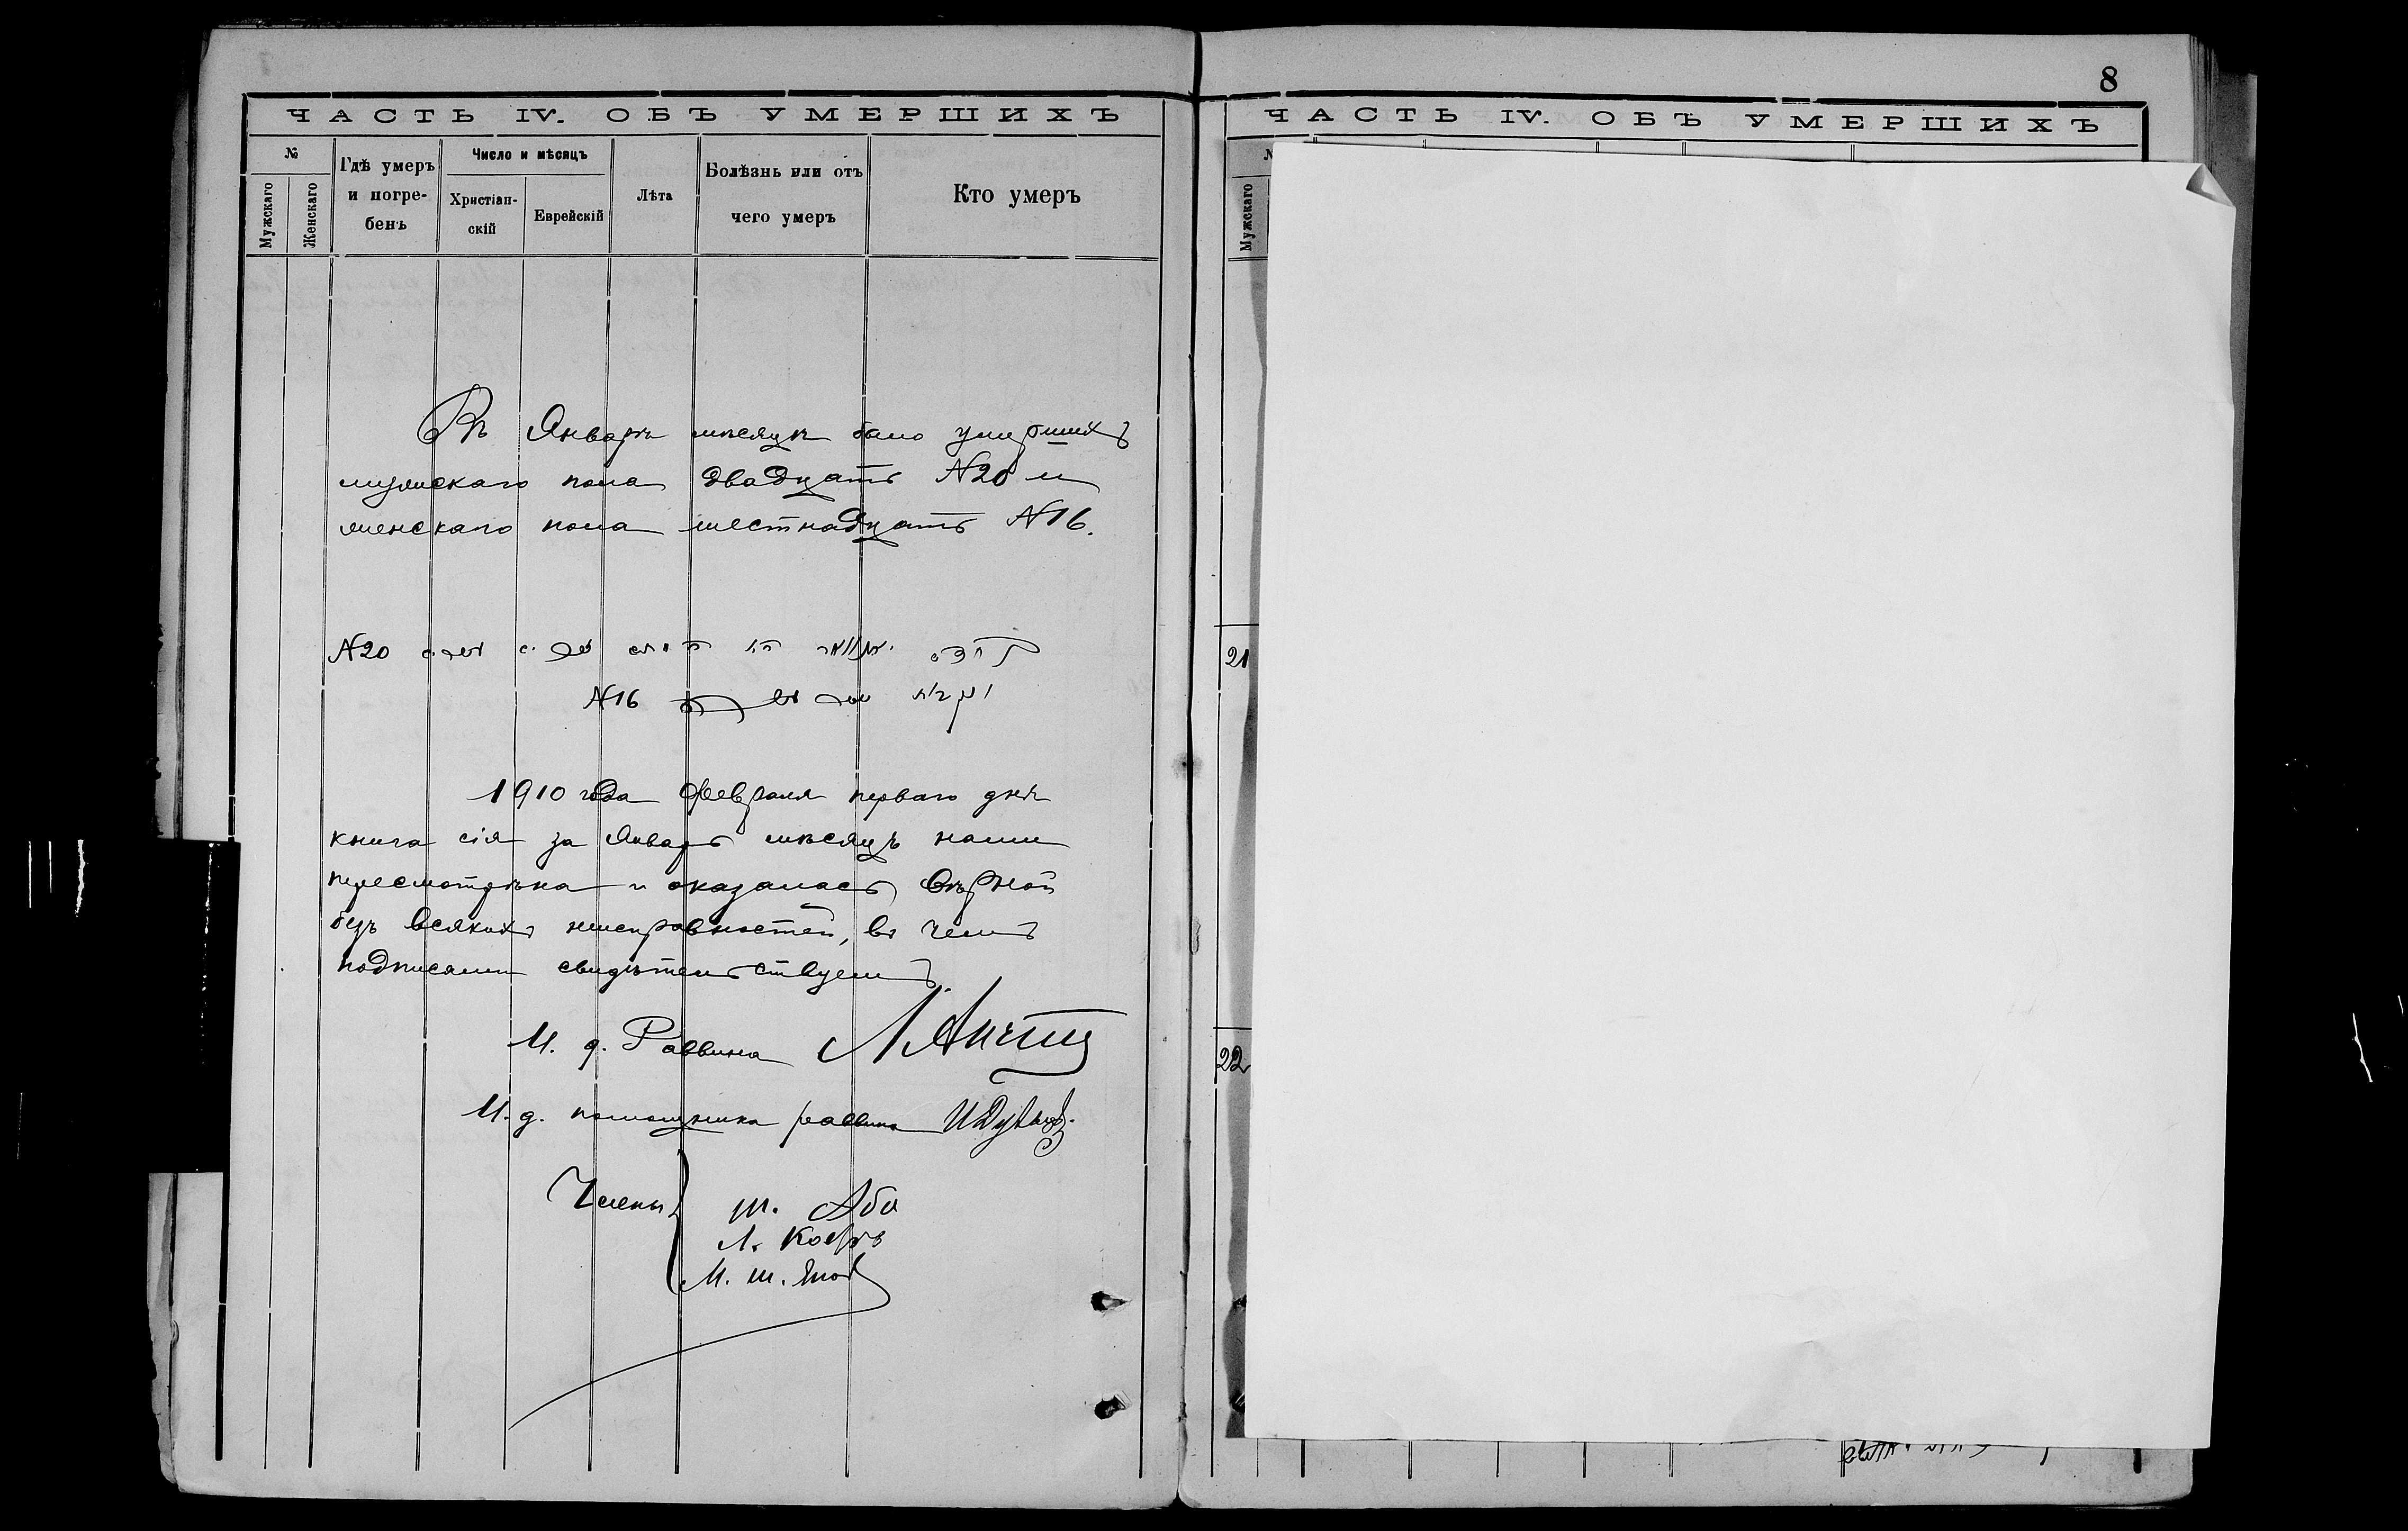 ЧАСТЬ IV. ОБЪ УМЕРШИХЪ
№
Мужскаго
Женскаго
Гдѣ умеръ
и погре-
бенъ
Число и мѣсяцъ
Христіан-
скій
Еврейскій
Лѣта
Болѣзнь или отъ
чего умеръ
Кто умеръ
Въ Январѣ мѣсяцѣ было умершихъ
мужскаго пола двадцать №20 и
женскаго пола шестнадцать №16.
№20
№16
1910 года Февраля перваго дня
книга сія за Январь мѣсяцъ нами
пересмотрѣна и оказалась вѣрной
безъ всякихъ неисправностей, въ чемъ
подписями свидѣтельствуемъ.
И. д. Раввина
И. д. помощника раввина
Члены
Ш. Або
Л.
М. Ш.
8
ЧАСТЬ IV. ОБЪ УМЕРШИХЪ
Мужскаго
21
22